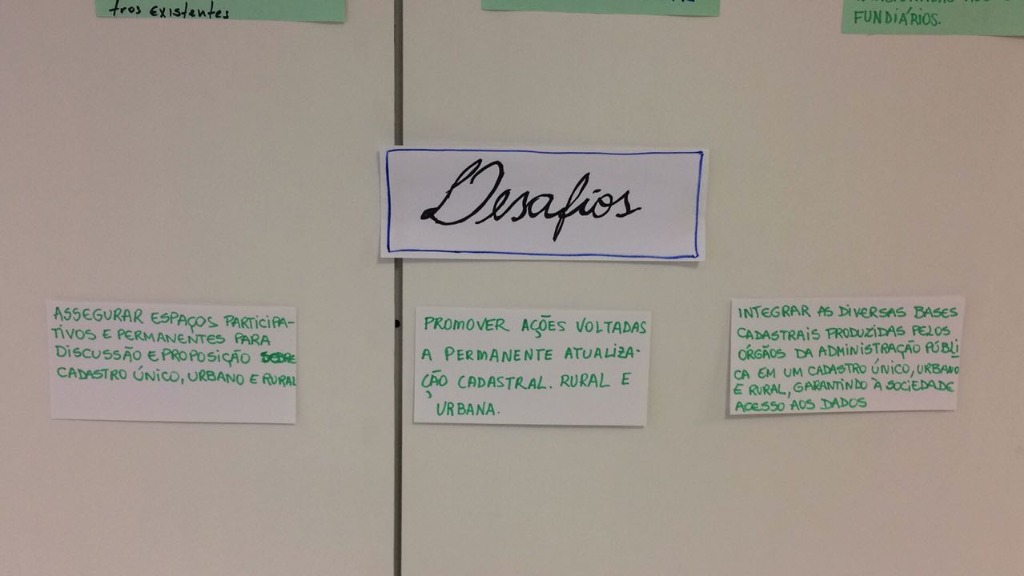 tros existentes
FUNDIÁRIOS.
Desafios
ASSEGURAR ESPAÇOS PARTICIPA-
TIVOS E PERMANENTES PARA
DISCUSSÃO E PROPOSIÇÃO SOBRE
CADASTRO ÚNICO, URBANO E RURAL
PROMOVER AÇÕES VOLTADAS
A PERMANENTE ATUALIZA-
ÇÃO CADASTRAL. RURAL E
URBANA.
INTEGRAR AS DIVERSAS BASES
CADASTRAIS PRODUZIDAS PELOS
ÓRGÃOS DA ADMINISTRAÇÃO PÚBLI
CA EM UM CADASTRO ÚNICO, URBANO
E RURAL, GARANTINDO À SOCIEDADE
ACESSO AOS DADOS